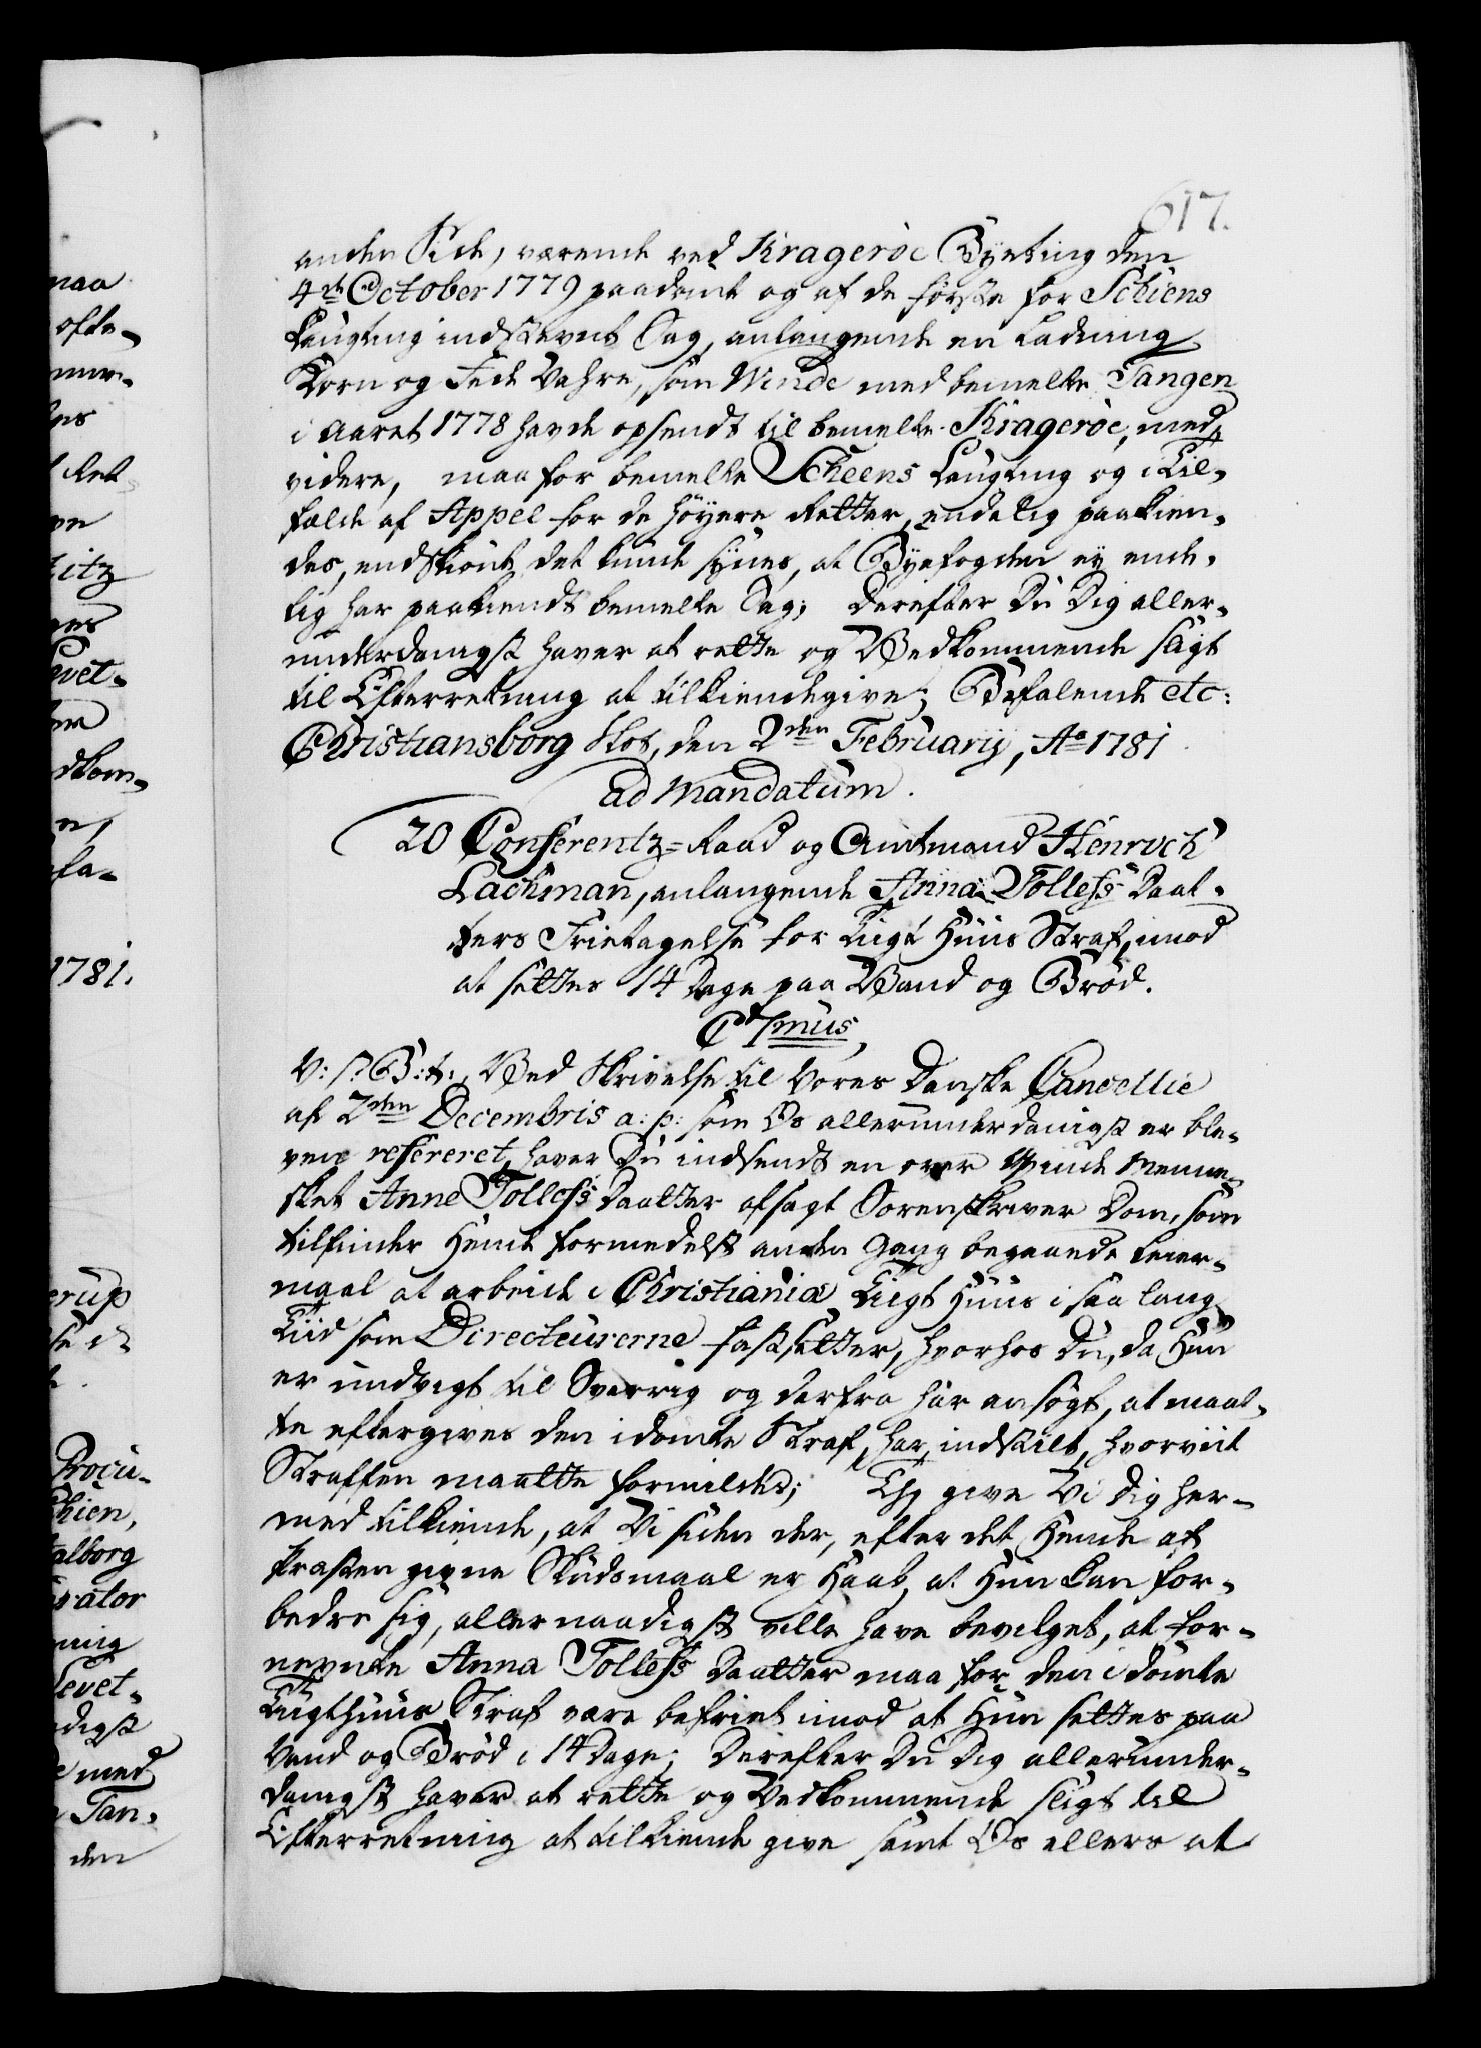 617.
anden Side, værende ved Krageröe Byeting den
4de October 1779 paadömt og af de förste for Schiens
Laugting indstevnt Sag, anlangende en Ladning
Korn og Fede Vahre, som Winde med bemelte Tangen
i Aaret 1778 havde opsendt til bemelte Krageröe, med
videre, maa for bemelte Scheens Laugting og i Til-
fælde af Appel for de höyere Retter, endelig paakien-
des, endskiönt det kunde synes, at Byefogden ey ende-
lig har paakiendt bemelte Sag; Derefter Du Dig aller-
underdanigst haver at rette og Vedkommende sligt
til Efterretning at tilkiendegive; Befalende etc:
Christiansborg Slot, den 2den Februarij, Ao 1781
ad Mandatum.
20 Conferentz-Raad og Amtmand Henrich
Lachman, anlangende Anna Tollefs Daat-
ters Frietagelse for Tugt Huus Straf, imod
at settes 14 Dage paa Vand og Bröd.
C 7mus,
V: S: G: t:, Ved Skrivelse til Vores Danske Cancellie
af 2den Decembris a: p: som Os allerunderdanigst er ble-
ven refereret, haver Du indsendt en over Qvinde Menne-
sket Anne Tollefs Daatter afsagt Sorenskriver Dom, som
tilfinder Hende formedelst anden Gang begaaede Leier-
maal at arbeide i Christiania Tugt Huus i saa lang
Tiid som Directeurerne fastsetter, hvorhos Du, da Hun
er undvigt til Sverrig og derfra har ansögt, at maat-
te eftergives den idömte Straf, har indstilt, hvorviit
Straffen maatte formildes; Thj give Vi Dig her-
med tilkiende, at Vi siden der, efter det Hende af
Præsten givne Skudsmaal er Haab, at Hun kan for-
bedre sig, allernaadigst ville have bevilget, at for-
nevnte Anna Tollefs Daatter maa for den idömte
Tugthuus Straf være befriet imod at Hun settes paa
Vand og Bröd i 14 Dage; Derefter Du Dig allerunder-
danigst haver at rette og Vedkommende sligt til
Efterretning at tilkiende give samt Os ellers at